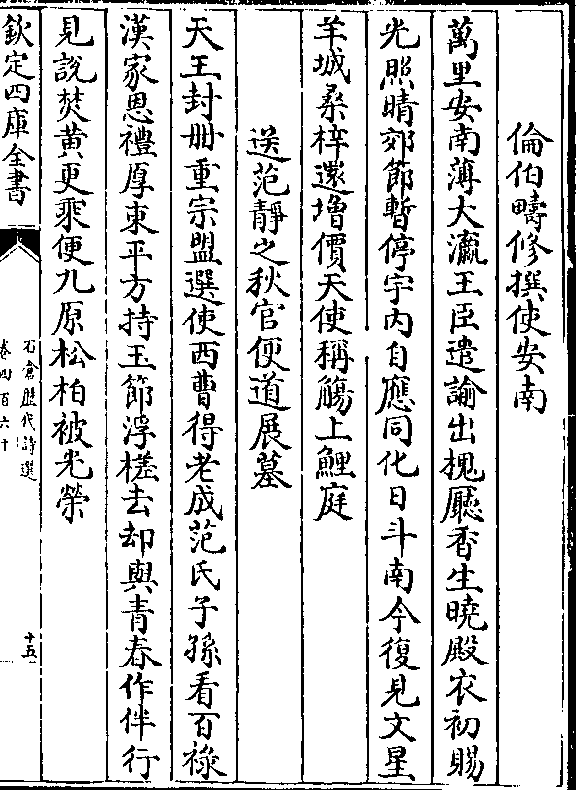 倫伯疇修撰使安南
萬里安南薄大瀛王臣遣諭出槐廳香生曉殿衣初賜
光照晴郊節暫停宇内自應同化日斗南今復見文星
羊城桑梓還增價天使稱觴上鯉庭
送范靜之秋官便道展墓
天王封册重宗盟選使西曹得老成范氏子孫看百祿
漢家恩禮厚東平方持玉節浮槎去却與青春作伴行
見說焚黄更乘便九原松柏被光榮
欽定四庫全書
石倉歷代詩選
卷四百六十
十五